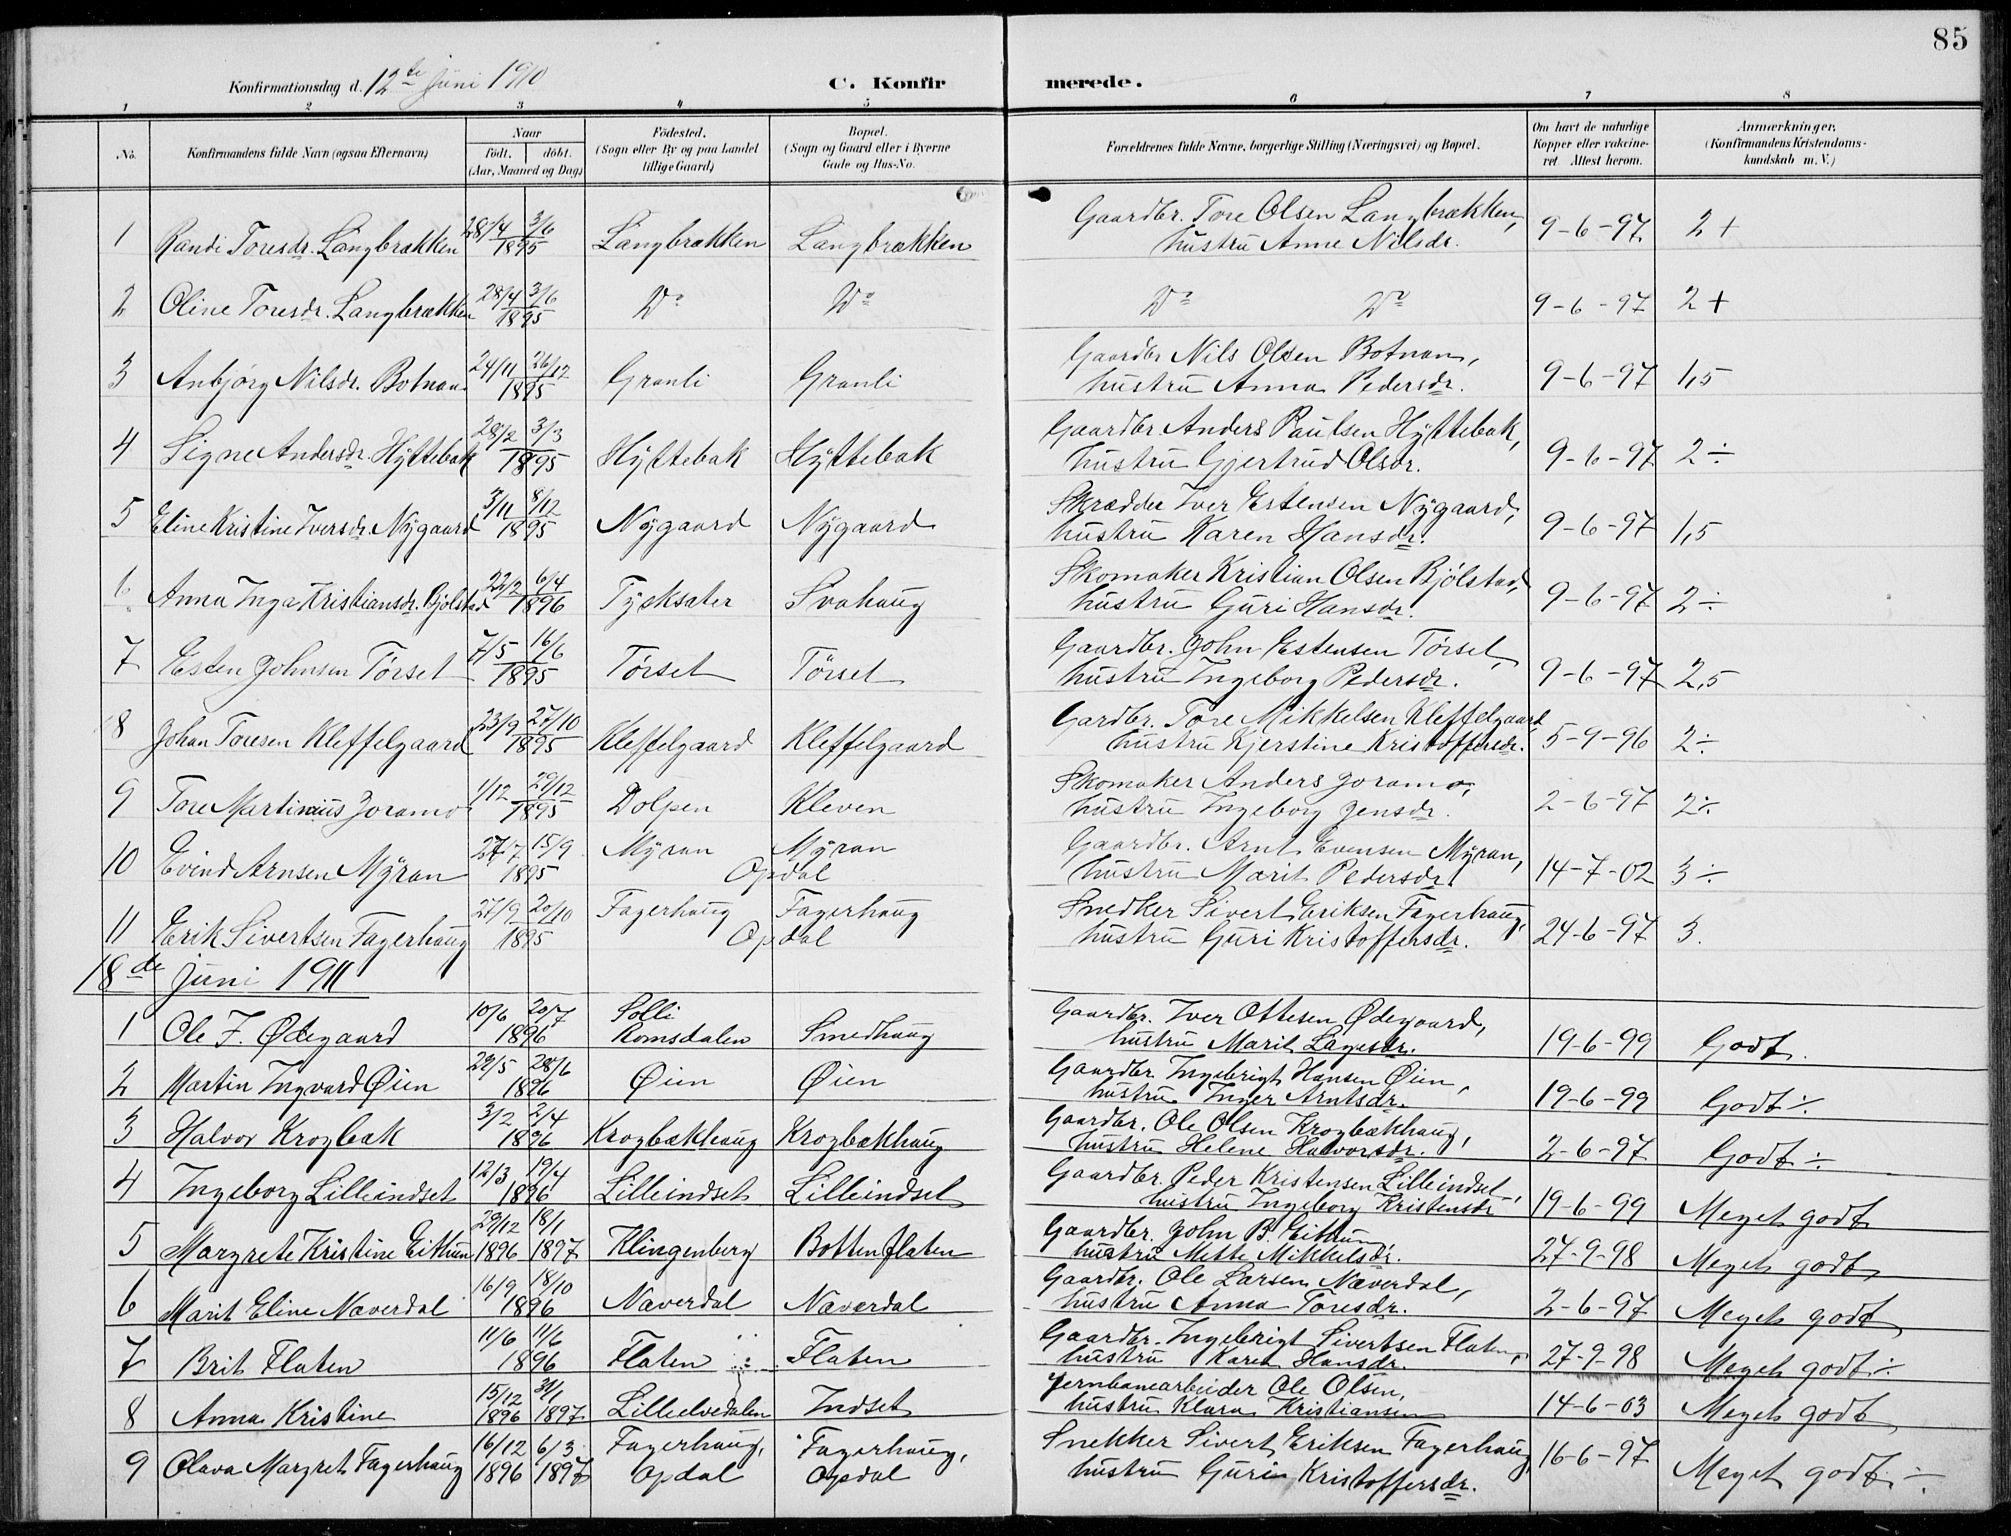 85
Konfirmationsdag d. 12te Juni 1910
C. Konfirmerede.
1 2 3 4 5 6 7 8
No. | Konfirmandens fulde Navn (ogsaa Efternavn) | Naar født. døbt. (Aar, Maaned og Dag) | Fødested. (Sogn eller By og paa Landet tillige Gaard) | Bopæl. (Sogn og Gaard eller i Byerne Gade og Hus-No. | Forældrenes fulde Navne, borgerlige Stilling (Næringsvei) og Bopæl. | Om havt de naturlige Kopper eller vaccineret Attest herom. | Anmærkninger, (Konfirmandens Kristendomskundskab m. V.)
1 Randi Toresdr. Langbrækken 28/4 3/6 1895 Langbrækken Langbrækken Gaardbr. Tore Olsen Langbrækken, hustru Anne Nilsdr. 9-6-97 2+
2 Oline Toresdr. Langbrækken 28/4 3/6 1895 Do Do Do Do 9-6-97 2+
3 Anbjørg Nilsdr. Botnan 24/11 26/12 1895 Granli Granli Gaardbr Nils Olsen Botnan, hustru Anna Pedersdr. 9-6-97 1,5
4 Signe Andersdr. Hyttebak 28/2 3/3 1895 Hyttebak Hyttebak Gaardbr. Anders Paulsen Hyttebak, hustru Gjertrud Olsdr. 9-6-97 2÷
5 Eline Kristine Iversdr Nygaard 3/11 8/12 1895 Nygaard Nygaard Skrædder Iver Estensen Nygaard, hustru Karen Hansdr. 9-6-97 1,5
6 Anna Inga Kristiansdr. Bjølstad 22/2 6/4 1896 Tysksæter Svahaug Skomaker Kristian Olsen Bjølstad, hustru Guri Hansdr. 9-6-97 2÷
7 Esten Johnsen Tørset 7/5 16/6 1895 Tørset Tørset Gaardbr. John Estensen Tørset, hustru Ingeborg Pedersdr. 9-6-97 2,5
8 Johan Toresen Kleffelgaard 23/9 27/10 1895 Kleffelgaard Kleffelgaard Gardbr. Tore Mikkelsen Kleffelgaard hustru Kjerstine Kristoffersdr. 5-9-96 2÷
9 Tore Martinius Joramo 1/12 29/12 1895 Dolpen Kleven Skomaker Anders Joramo, hustru Ingeborg Jensdr. 2-6-97 2÷
10 Evind Arnsen Myran 27/7 15/9 1895 Myran Myran Opdal Gaardbr. Arnt Evensen Myran, hustru Marit Pedersdr. 14-7-02 3÷
11 Erik Sivertsen Fagerhaug 27/9 20/10 1895 Fagerhaug Fagerhaug Opdal Snedker Sivert Eriksen Fagerhaug, hustru Guri Kristoffersdr. 24-6-97 3.
18de juni 1911
1 Ole I. Ødegaard 10/6 20/7 1896 Solli Romsdalen Smedhaug Gaardbr. Iver Ottesen Ødegaard, hustru Marit Larsdr. 19-6-99 Godt.
2 Martin Ingvard Øien 22/5 28/6 1896 Øien Øien Gaardbr Ingebrigt Hansen Øien, hustru Inger Arntsdr. 19-6-99 Godt÷
3 Halvor Krogbak 3/2 2/4 1896 Krogbækhaug Krogbækhaug Gaardbr. Ole Olsen Krogbækhaug, hustru Helene Halvorsdr. 2-6-97 Godt÷
4 Ingeborg Lilleindset 12/3 19/4 1896 Lilleindset Lilleindset Gaardbr. Peder Kristensen Lilleindset, hustru Ingeborg Kristensdr 19-6-99 Meget godt
5 Margrete Kristine Eithun 29/12 1896 18/1 1897 Klingenberg Bottenflaten Gaardbr. John B. Eithun hustru Mette Mikkelsdr. 27-9-98 Meget godt
6 Marit Eline Næverdal 16/9 18/10 1896 Næverdal Næverdal Gaardbr. Ole Larsen Næverdal, hustru Anna Toresdr. 2-6-97 Meget godt
7 Brit Flaten 11/6 11/6 1896 Flaten Flaten Gaardbr. Ingebrigt Sivertsen Flaten, hustru Karen Hansdr. 27-9-98 Meget godt÷
8 Anna Kristine 15/12 1896 31/1 1897 Lilleelvedalen Indset Jernbanearbeider Ole Olsen, hustru Klara Kristiansen 14-6-03 Meget godt
9 Olava Margret Fagerhaug 16/12 1896 6/3 1897 Fagerhaug, Opdal Fagerhaug, Opdal Snekker Sivert Eriksen Fagerhaug, hustru Guri Kristoffersdr. 16-6-97 Meget godt÷